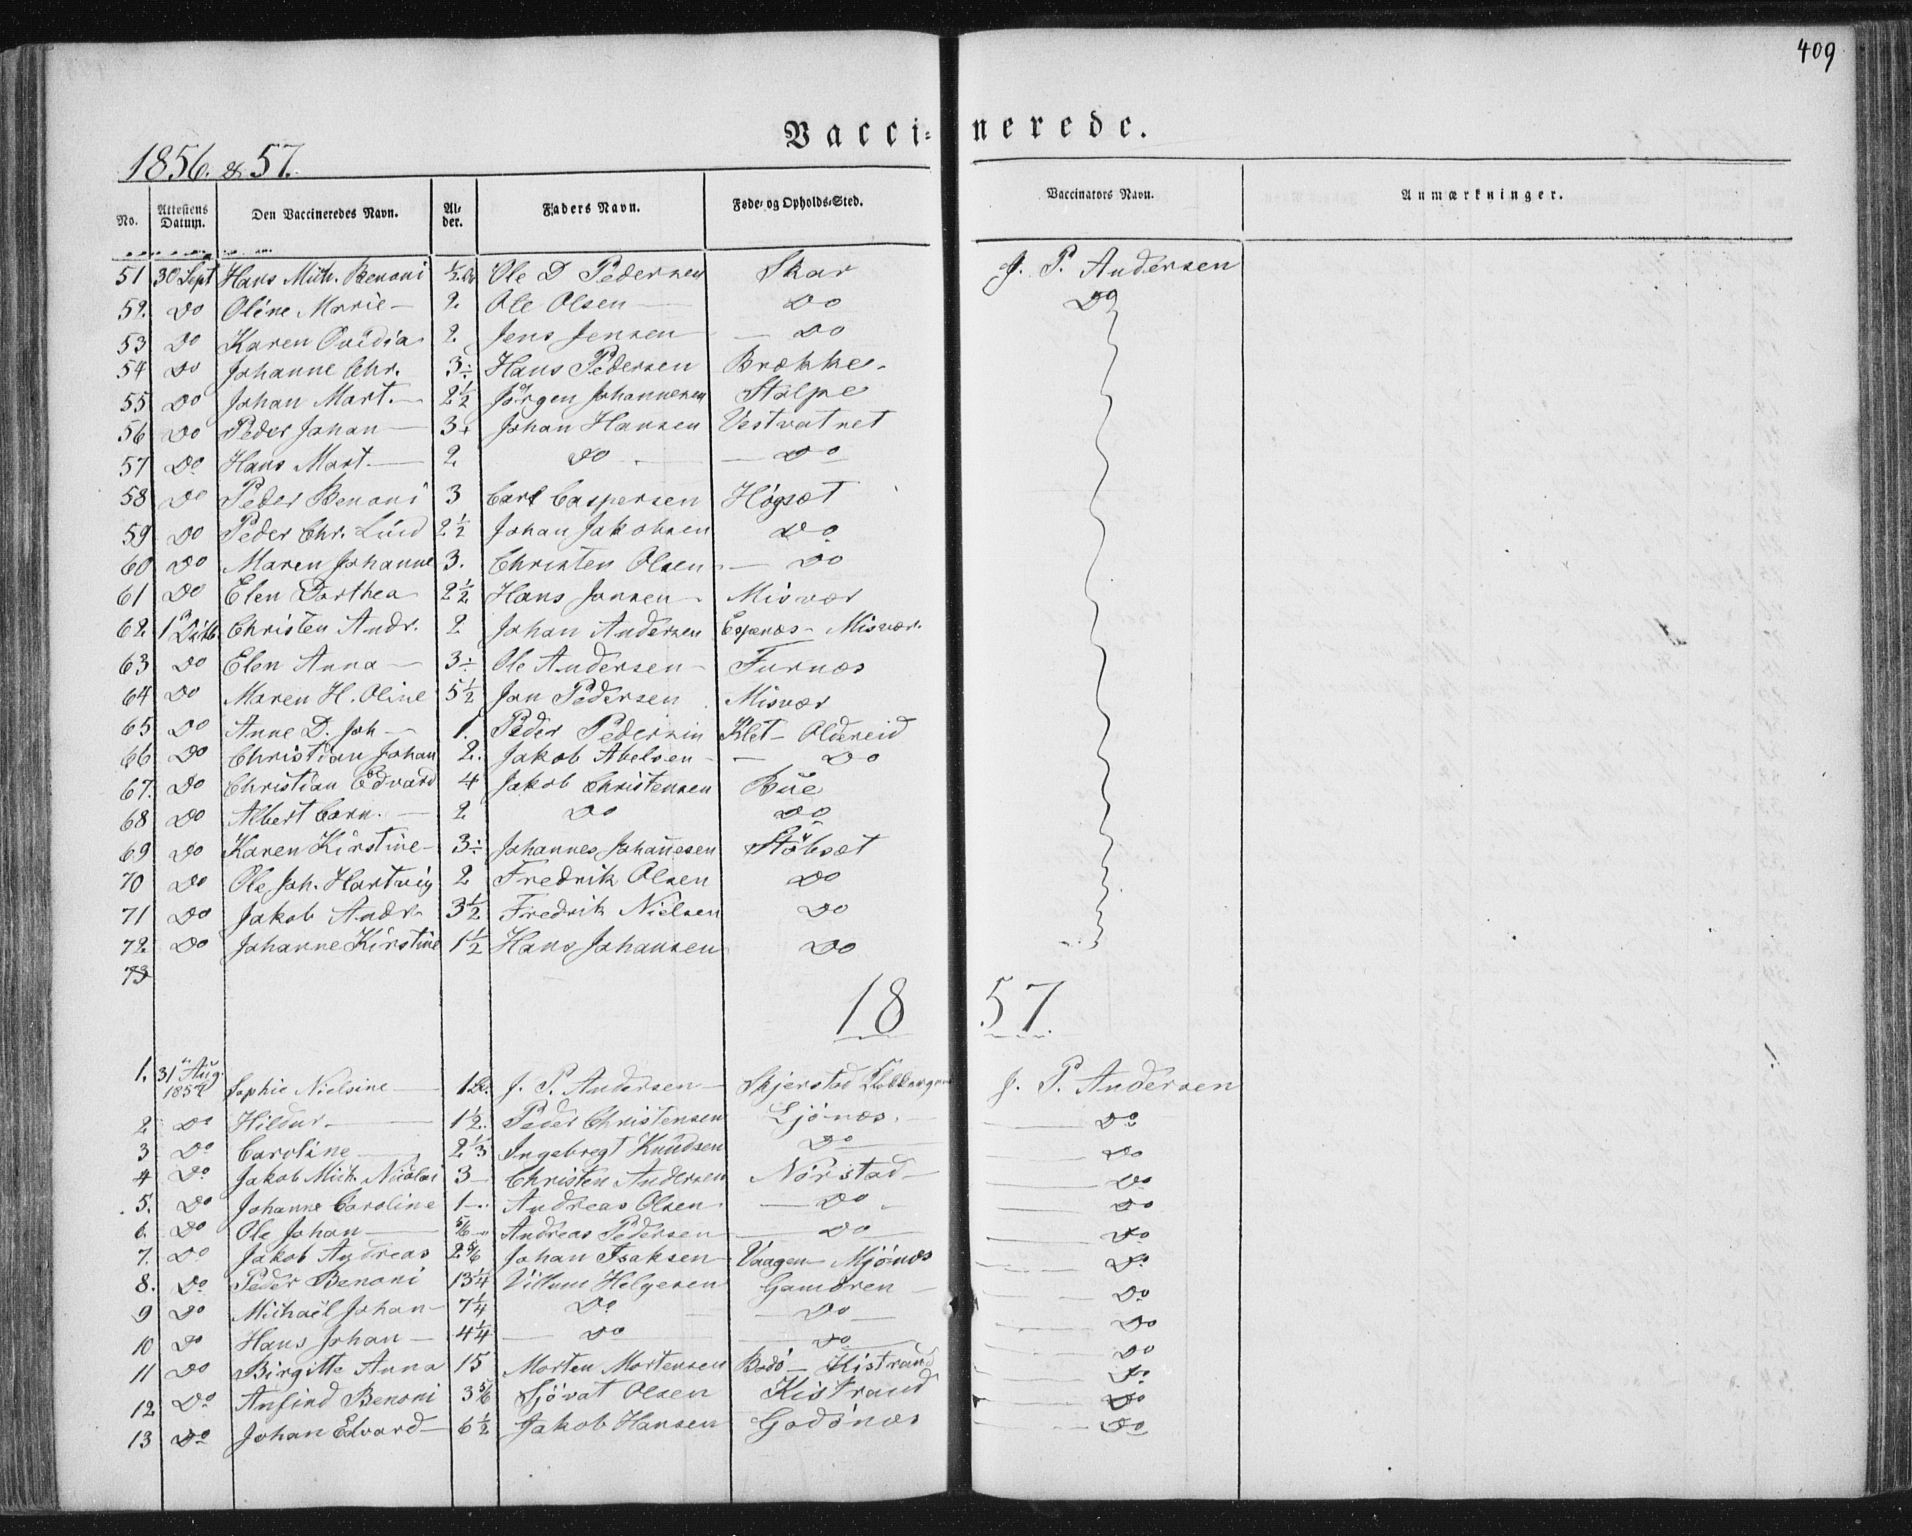 409
Vaccinerede.
1856. & 57.
No. Attestens Datum. Den Vaccineredes Navn. Alder. Faders Navn. Føde- og Opholds-Sted. Vaccinators Navn. Anmærkninger.
51 30 Sept Hans Mich. Benoni ½ Ole D Pedersen Skar J. P. Andersen
52. Do Oline Marie 2 Ole Olsen Do Do
53 Do Karen Ovidia 2 Jens Jensen Do
54 Do Johanne Chr. 3 Hans Pedersen Brække
55 Do Johan Mart. 2½ Jørgen Johannesen Stolpe
56 Do Peder Johan 3 Johan Hansen Vestvatnet
57 Do Hans Mart 2 Do Do
58 Do Peder Benoni 3 Carl Caspersen Högsæt
59 Do Peder Chr. Lund 2½ Johan Jakobsen Do
60 Do Maren Johanne 3. Christen Olsen Do
61 Do Elen Dorthea 2½ Hans Jansen Misvær
62 1 Octb. Christen Andr. 2 Johan Andersen Espenæs - Misvær
63 Do Elen Anna 3 Ole Andersen Furnæs
64 Do Maren H. Oline 5½ Jon Pedersen Misvær
65 Do Anne D. Joh 1. Peder Pedersen Klet - Oldereid
66 Do Christian Johan 2. Jakob Abelsen Do
67. Do Christian Edvard 4 Jakob Christensen Bue
68 Do Albert Corn. 2 Do Do
69 Do Karen Kirstine 3 Johannes Johannesen Støbsæt
70 Do Ole Joh. Hartvig 2 Fredrik Olsen Do
71 Do Jakob Andr. 3½ Fredrik Nielsen Do
72. Do Johanne Kirstine 1½ Hans Johansen Do
73
1857.
1. 31 Aug. 1857 Sophie Nielsine 1 J. P. Andersen Skjerstad J. P. Andersen
2 Do Hildur 1½ Peder Christensen Ljönæs. Do
3 Do Caroline 2⅓ Ingebregt Knudsen Do Do
4 Do Jakob Mich. Nicolai 3 Christen Andersen Nörstad Do
5. Do Johanne Caroline 1 Andreas Olsen Do Do
6. Do Ole Johan 5/6 Andreas Pedersen Do Do
7. Do Jakob Andreas 2 5/6 Johan Isaksen Vaagen - Mjönæs Do
8. Do Peder Benoni 13¼ Villum Helgesen Gamoren Do
9 Do Michael Johan 7¼ Do Do Do
10 Do Hans Johan 4¼ Do Do Do
11 Do Birgitte Anna 15 Morten Mortensen Bodö - Kistrand Do
12 Do Anfind Benoni 3 5/6 Sjövat Olsen Kistrand Do
13 Do Johan Edvard 6½ Jakob Hansen Godönæs Do